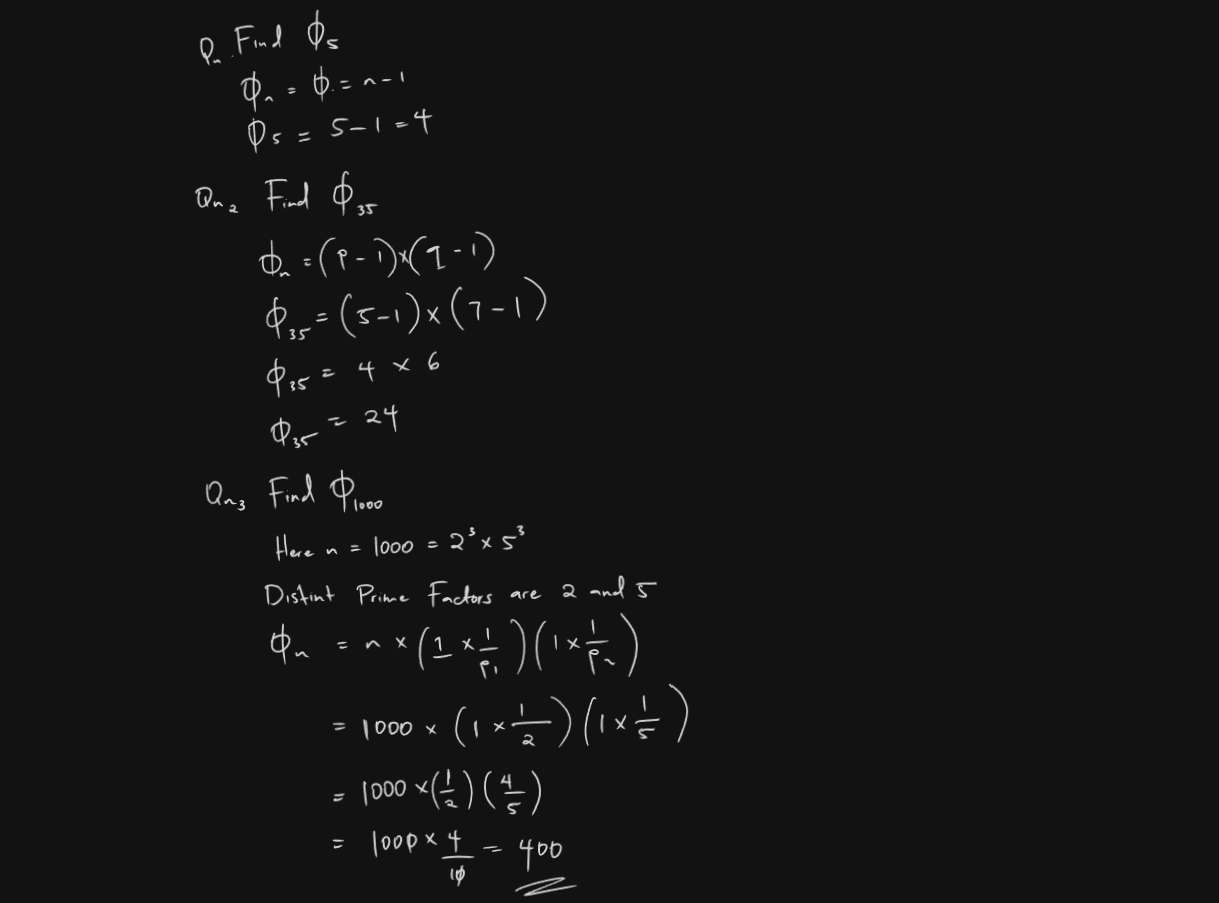 Qn. Find ϕ₅
ϕₙ = ϕ. = n-1
ϕ₅ = 5-1 = 4
Qn₂ Find ϕ₃₅
ϕₙ = (p-1)×(q-1)
ϕ₃₅ = (5-1)×(7-1)
ϕ₃₅ = 4 × 6
ϕ₃₅ = 24
Qn₃ Find ϕ₁₀₀₀
Here n = 1000 = 2³ × 5³
Distint Prime Factors are 2 and 5
ϕₙ = n × (1 × 1/p₁)(1 × 1/p₂)
= 1000 × (1 × 1/2)(1 × 1/5)
= 1000 × (1/2)(4/5)
= 1000 × 4/10 = 400